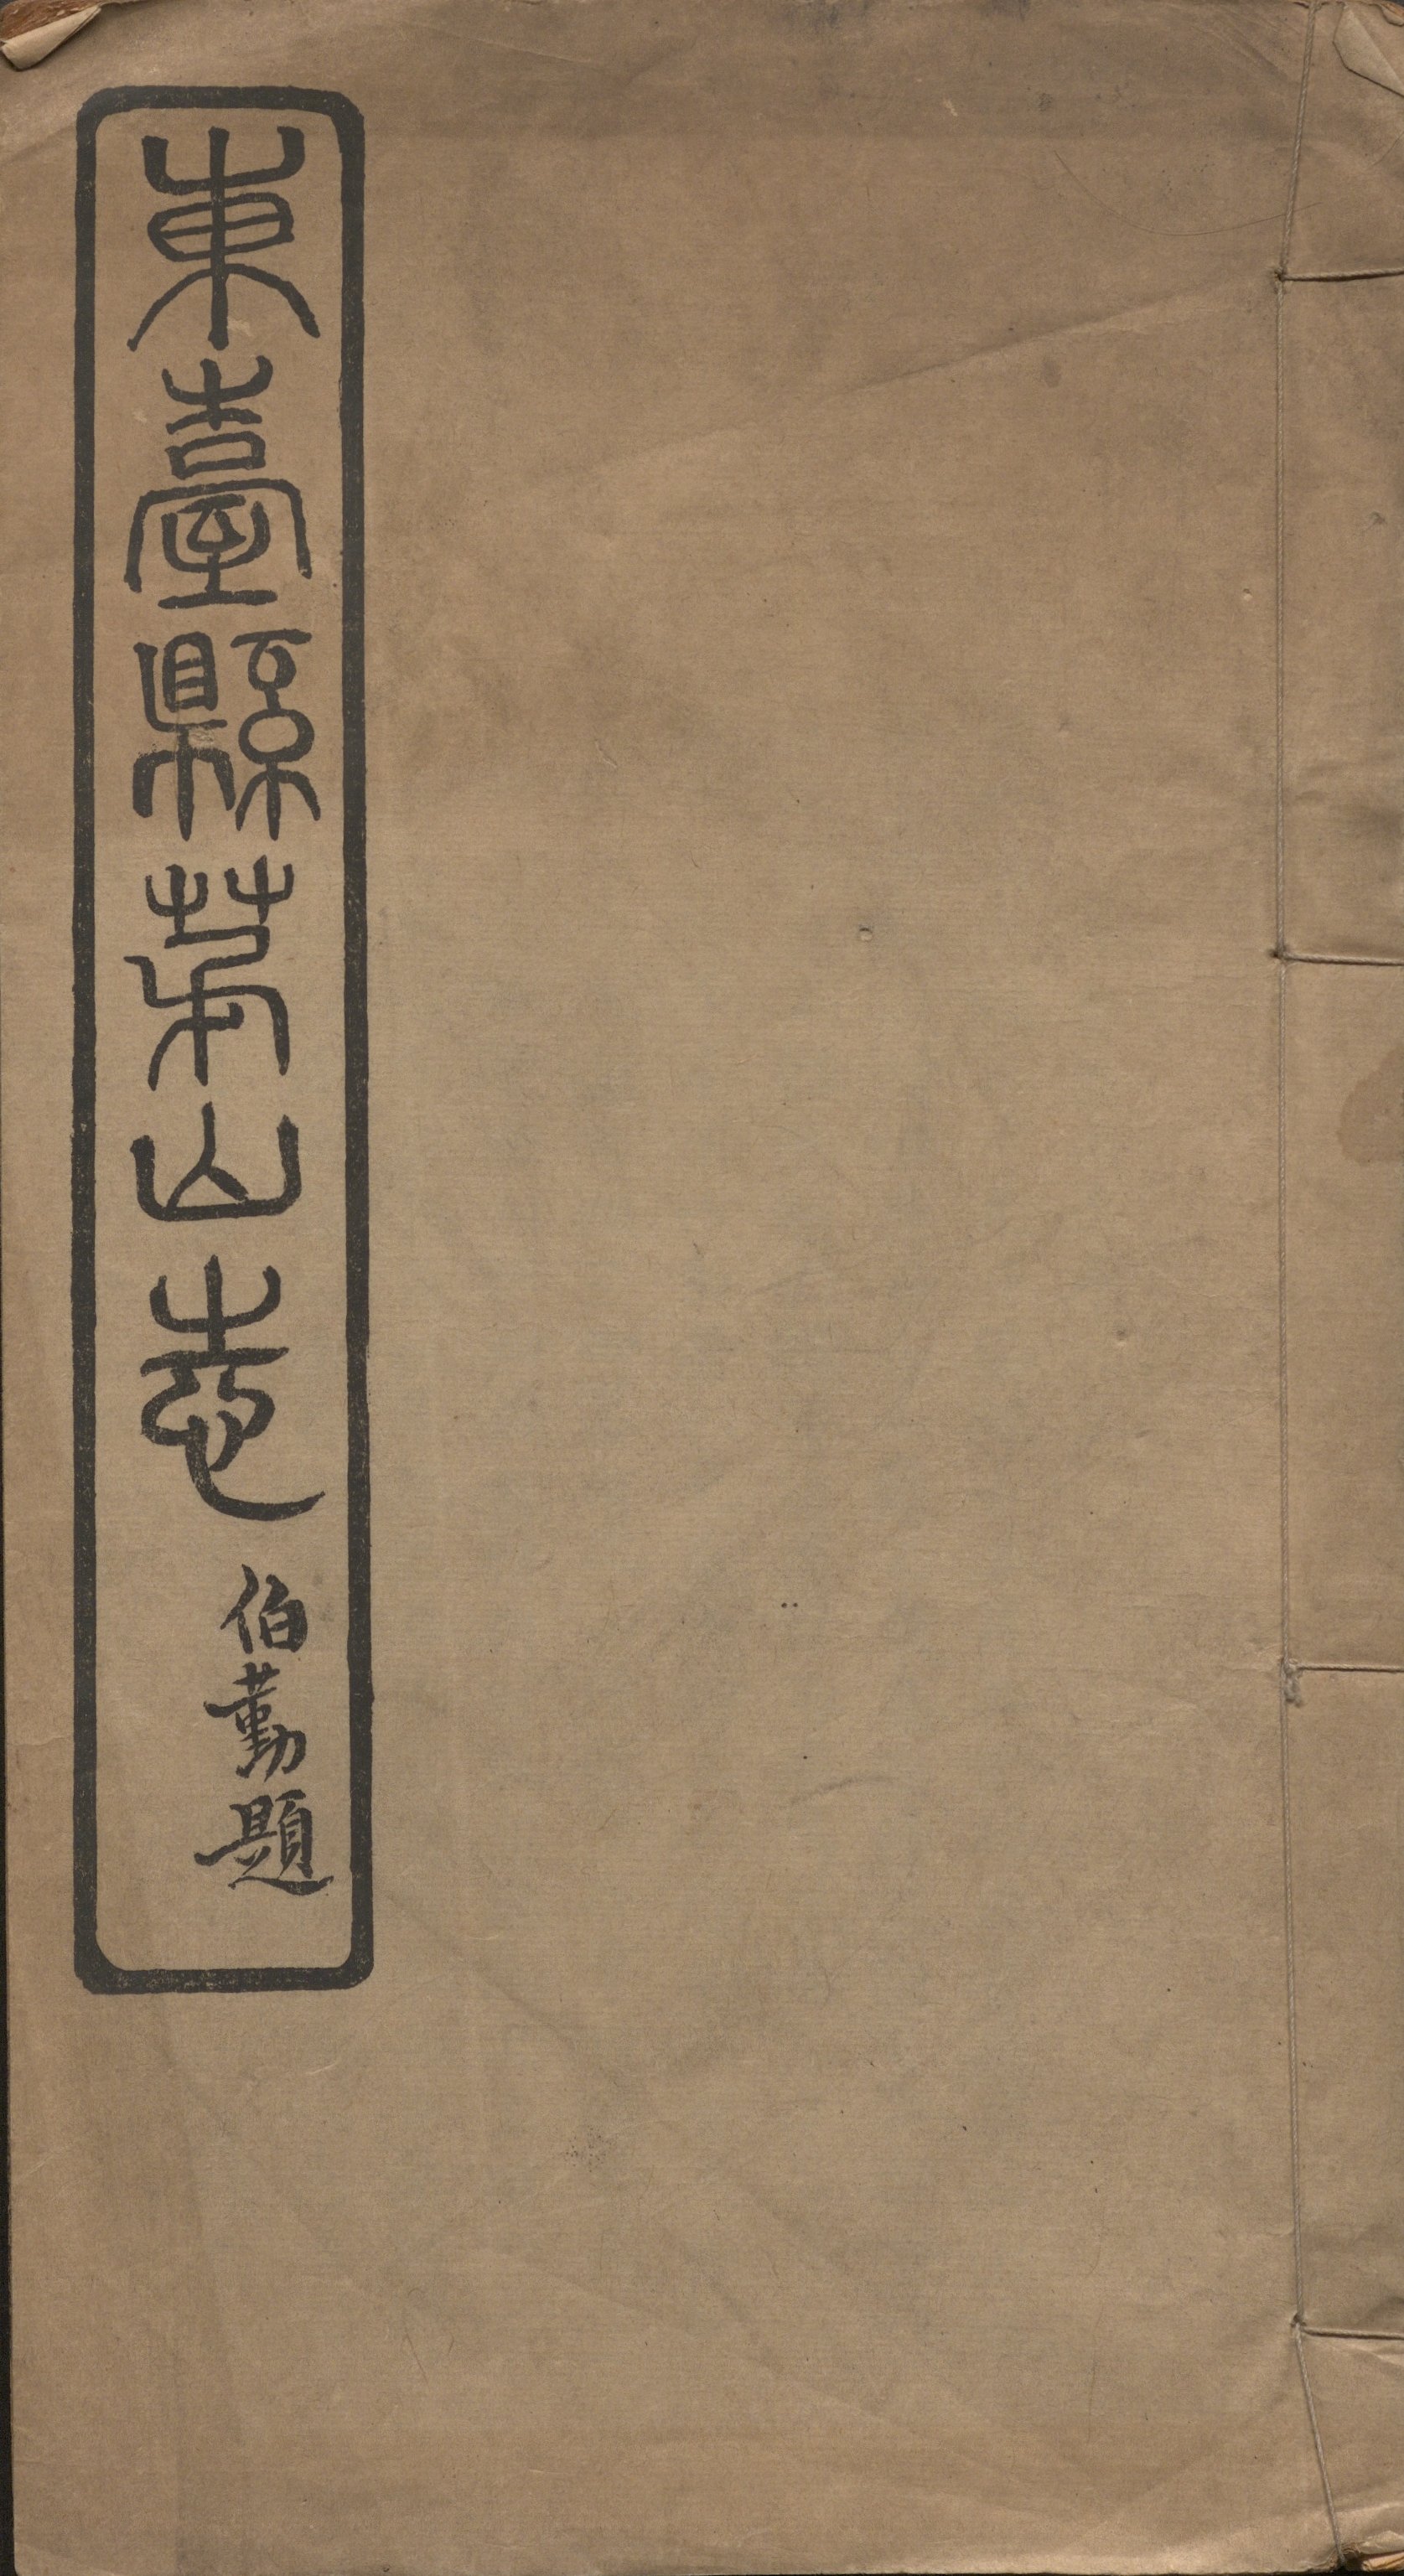 東臺縣茅山志
伯勤題